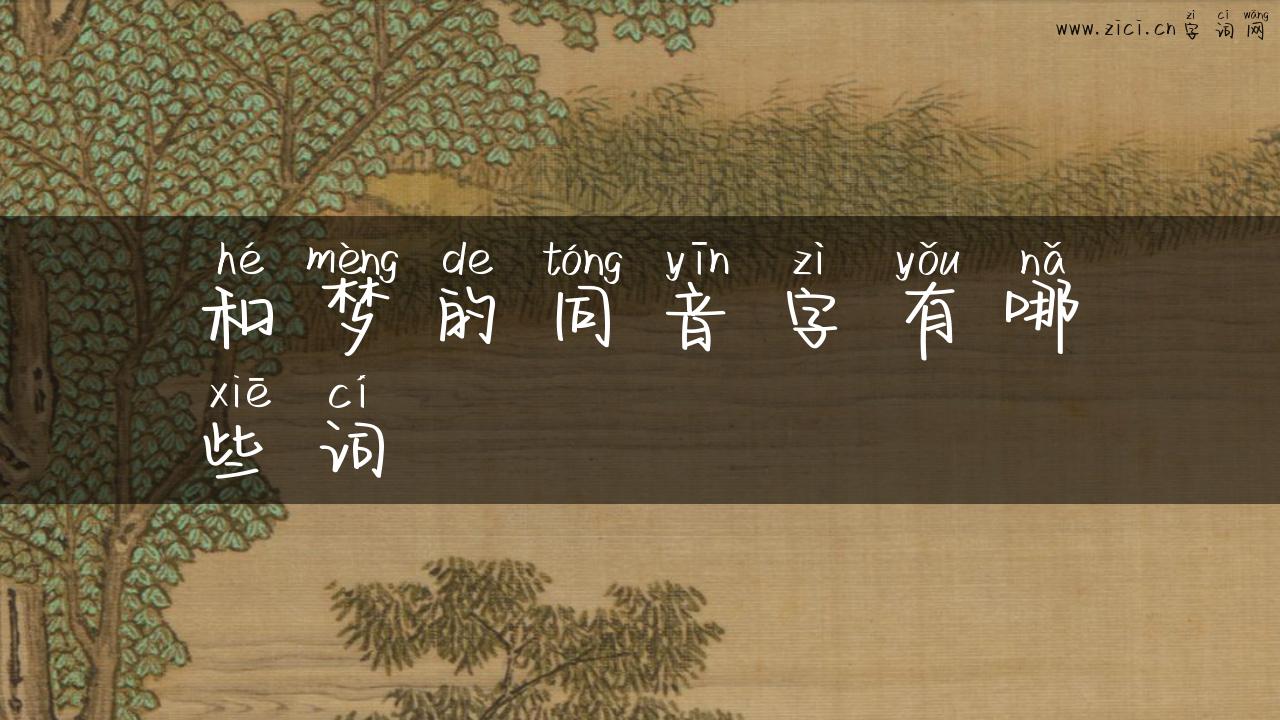 zì cí wǎng
www.zici.cn 字 词 网
hé mèng de tóng yīn zì yǒu nǎ
和 梦 的 同 音 字 有 哪
xiē cí
些 词